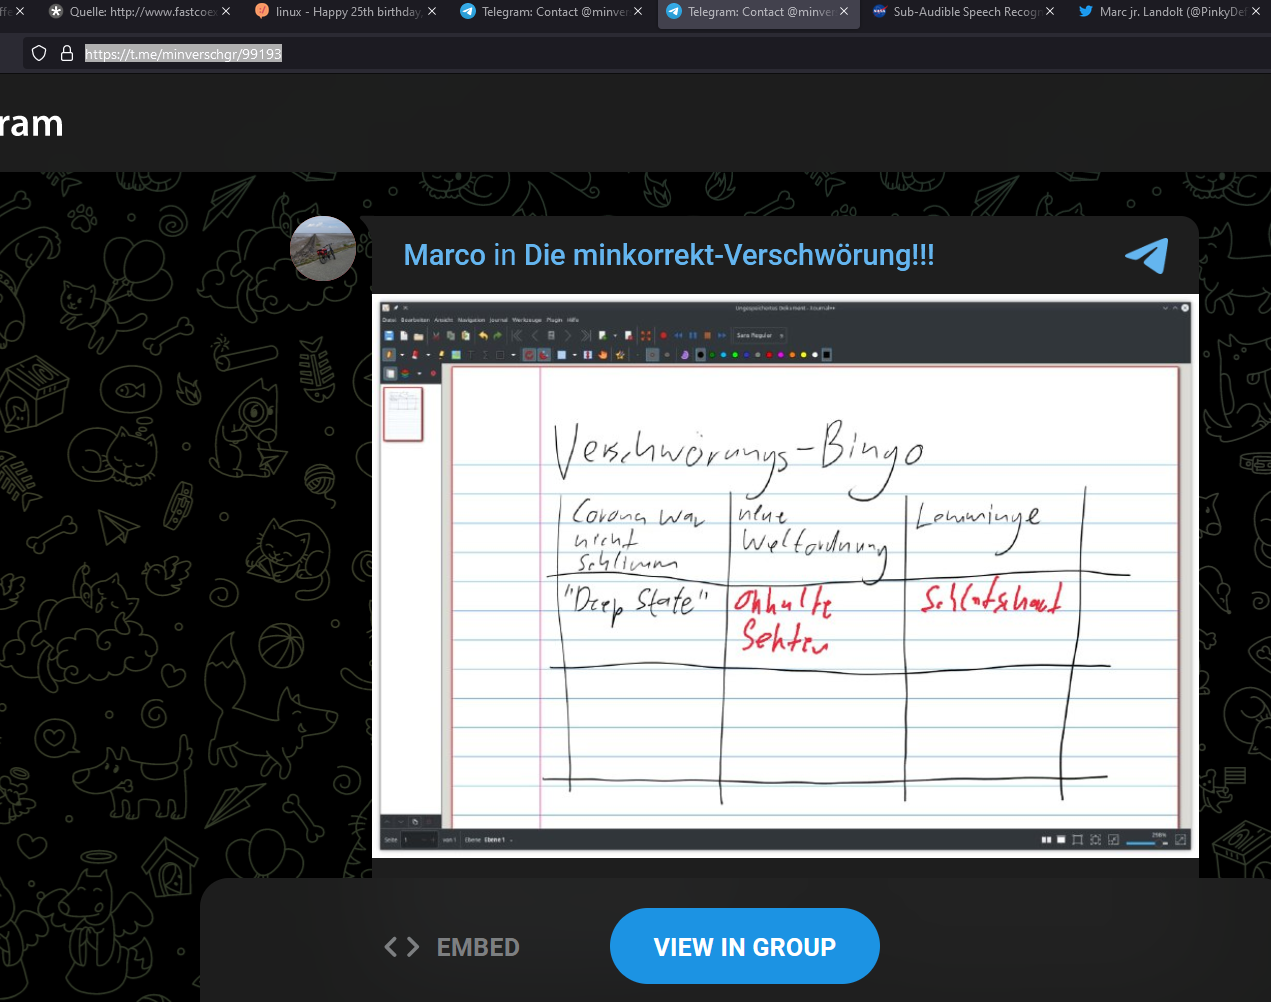 Quelle: http://www.fastcoe
linux - Happy 25th birthday,
Telegram: Contact @minver
Telegram: Contact @minver
Sub-Audible Speech Recogr
Marc jr. Landolt (@PinkyDe
https://t.me/minverschgr/99193
ram
Marco in Die minkorrekt-Verschwörung!!!
Datei Bearbeiten Ansicht Navigation Journal Werkzeuge Plugin Hilfe
Sans Regular
Verschwörungs-Bingo
Corona war nicht schlimm
neue Weltordnung
Lemminge
"Deep State"
Okkulte Sekten
Schlafschaf
Seite 1 von 1 Ebene Ebene 1
298%
EMBED
VIEW IN GROUP